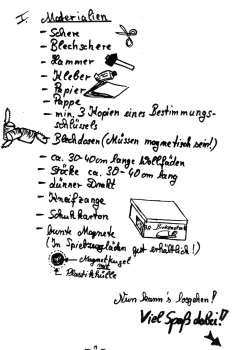 I. Materialien
- Schere
- Blechschere
- Hammer
- Kleber
- Papier
- Pappe
- min. 3 Kopien eines Bestimmungs-
schlüssels
- Blechdosen (Müssen magnetisch sein!)
- ca. 30-40cm lange Wollfäden
- Stöcke ca. 30-40cm lang
- dünner Draht
- Kneifzange
- Schuhkarton
- bunte Magnete
(In Spielzeugläden gut erhältlich!)
← Magnetkugel
mit
← Plastikhülle
Nun kann's losgehen!
Viel Spaß dabei!!
- 2 -